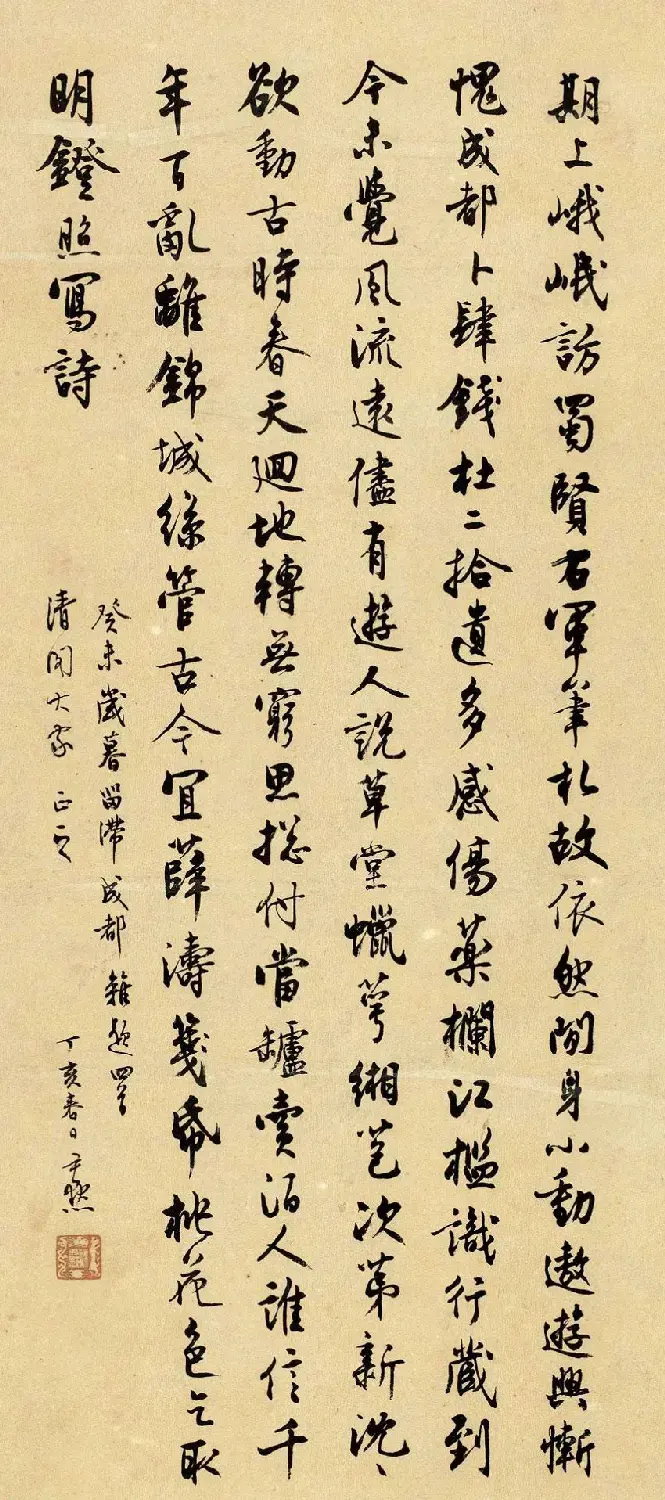 期上峨岷訪蜀賢右軍筆札故依然閒身小動遨遊興慚
愧成都卜肆錢杜二拾遺多感傷藥欄江檻識行藏到
今未覺風流遠儘有遊人說草堂蠟萼緗苞次第新沈〻
欲動古時春天迴地轉無窮思摠付當罏賣酒人誰信千
年百亂離錦城絲管古今宜薛濤箋帋桃花色乞取
明鐙照寫詩
癸未歲暮留滯成都雜題四首
清大家正之
丁亥春日尹默